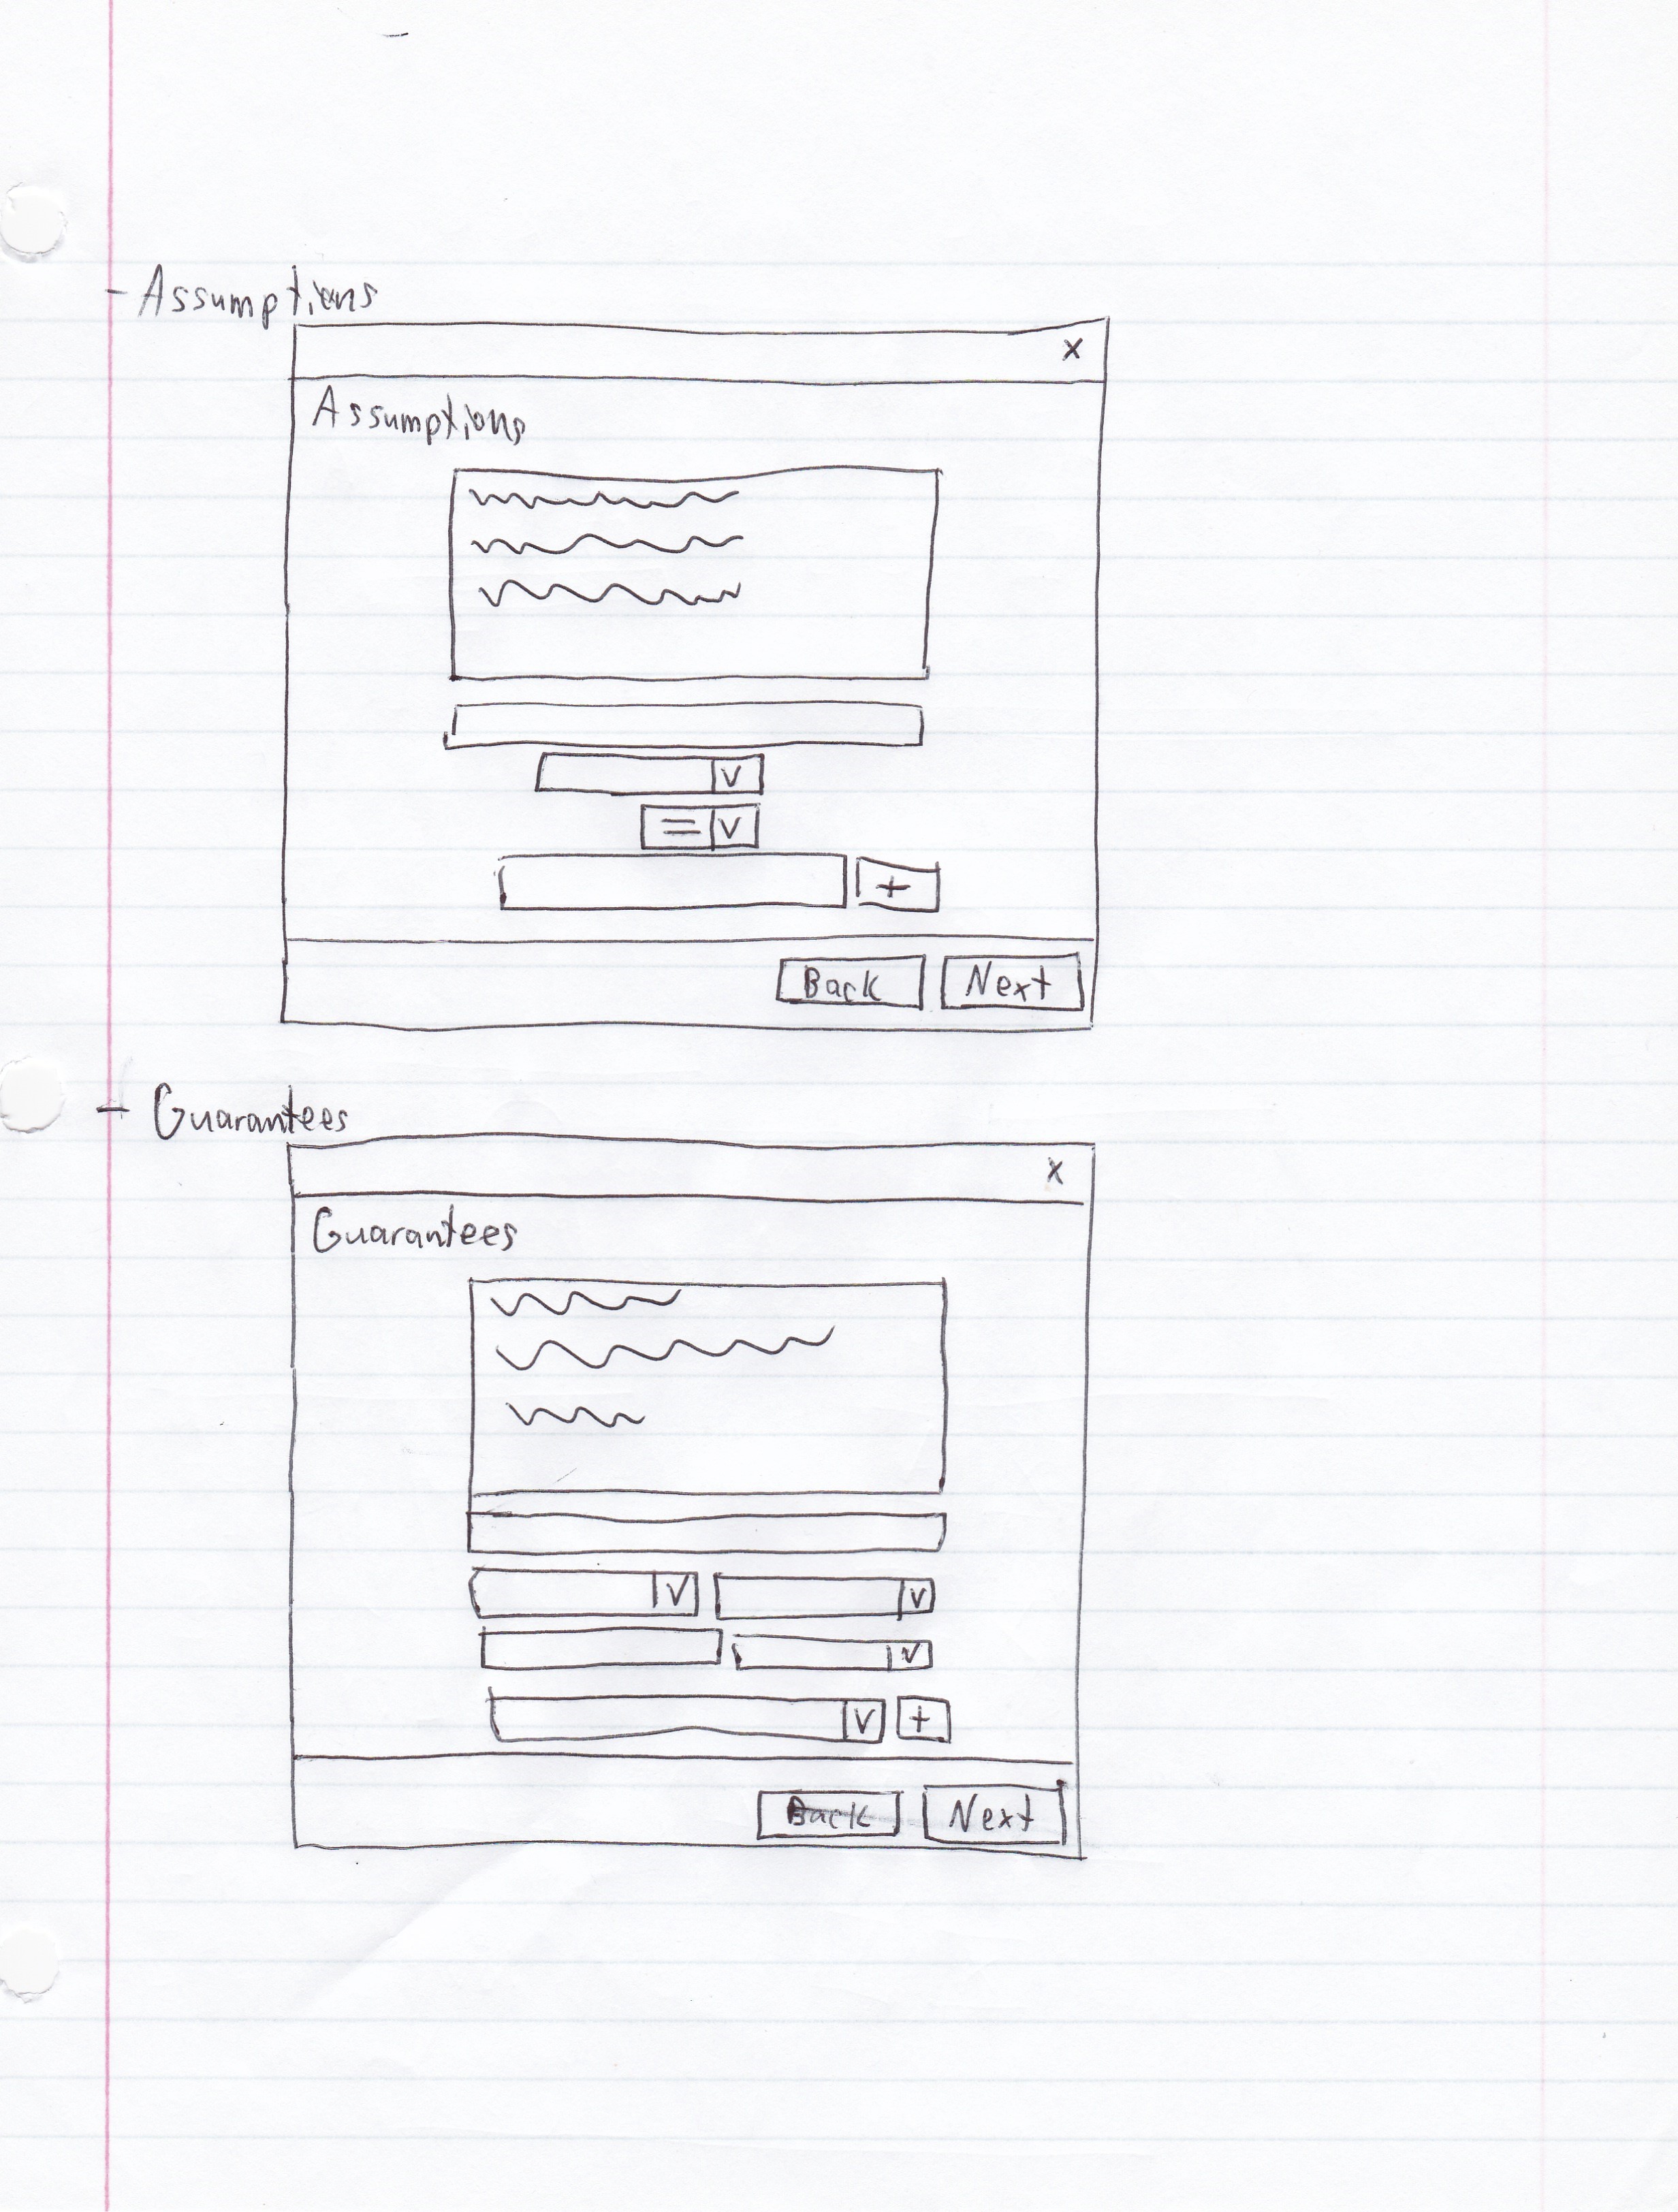 - Assumptions
x
Assumptions
V
= V
+
Back Next
- Guarantees
x
Guarantees
V V
V
V +
Back Next